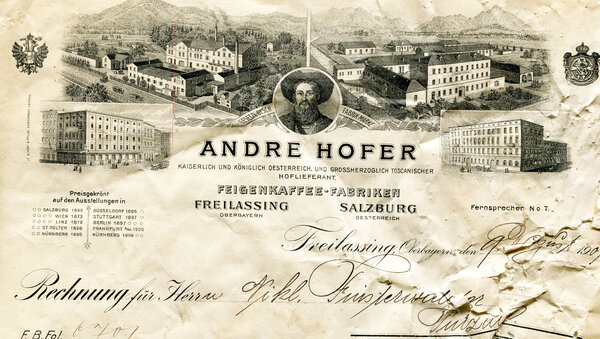 GESCHÜTZTE
FABRIKMARKE
ANDRE HOFER
KAISERLICH UND KÖNIGLICH OESTERREICH. UND GROSSHERZOGLICH TOSCANISCHER
HOFLIEFERANT.
FEIGENKAFFEE-FABRIKEN
FREILASSING
OBERBAYERN
SALZBURG
OESTERREICH
Preisgekrönt
auf den Ausstellungen in
SALZBURG 1865
WIEN 1873
LINZ 1879
ST. PÖLTEN 1896
NÜRNBERG 1896
DÜSSELDORF 1895
STUTTGART 1897
BERLIN 1897
FRANKFURT No. 1905
NÜRNBERG 1906
Fernsprecher No 7.
Freilassing, Oberbayern, den 9. August 190
Rechnung für Herrn Nikl. Finsterwalder
F.B.Fol. 6701